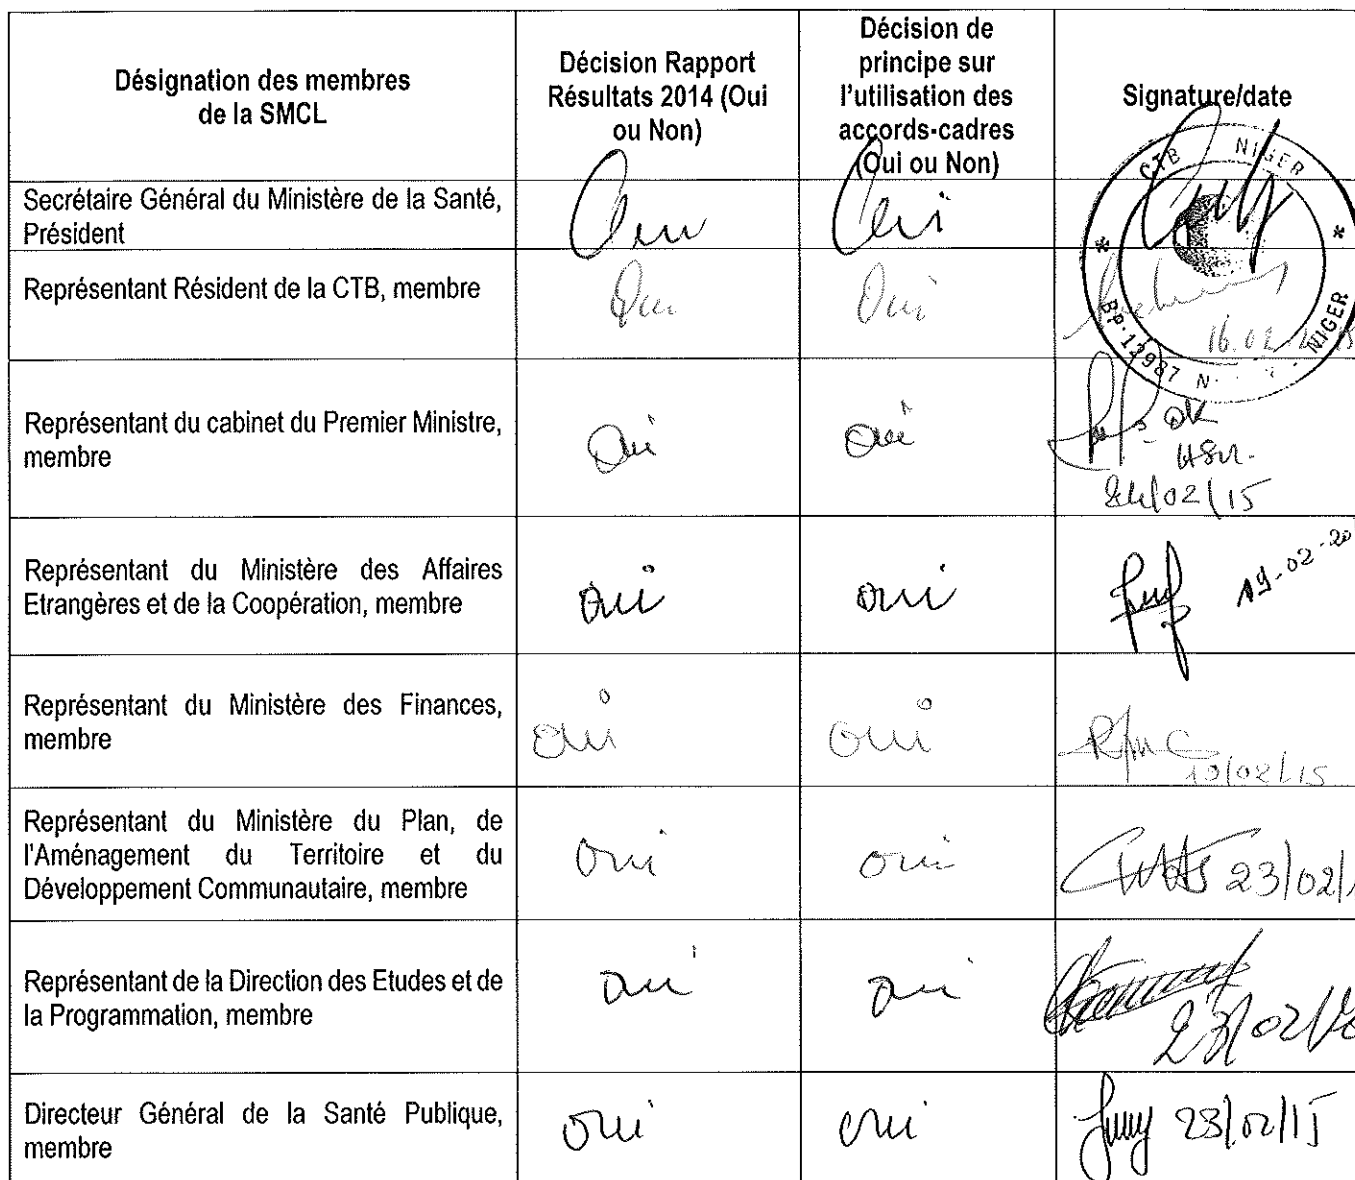 Désignation des membres
de la SMCL
Décision Rapport
Résultats 2014 (Oui
ou Non)
Décision de
principe sur
l'utilisation des
accords-cadres
(Oui ou Non)
Signature/date
Secrétaire Général du Ministère de la Santé,
Président
Oui
Oui
CTB NIGER
Représentant Résident de la CTB, membre
Oui
Oui
16.02
BP.12987 N - NIGER
Représentant du cabinet du Premier Ministre,
membre
Oui
oui
OK
24/02/15
Représentant du Ministère des Affaires
Etrangères et de la Coopération, membre
oui
oui
19-02-20
Représentant du Ministère des Finances,
membre
oui
oui
/02/15
Représentant du Ministère du Plan, de
l'Aménagement du Territoire et du
Développement Communautaire, membre
oui
oui
23/02/
Représentant de la Direction des Etudes et de
la Programmation, membre
oui
oui
23/02/
Directeur Général de la Santé Publique,
membre
oui
oui
23/02/15